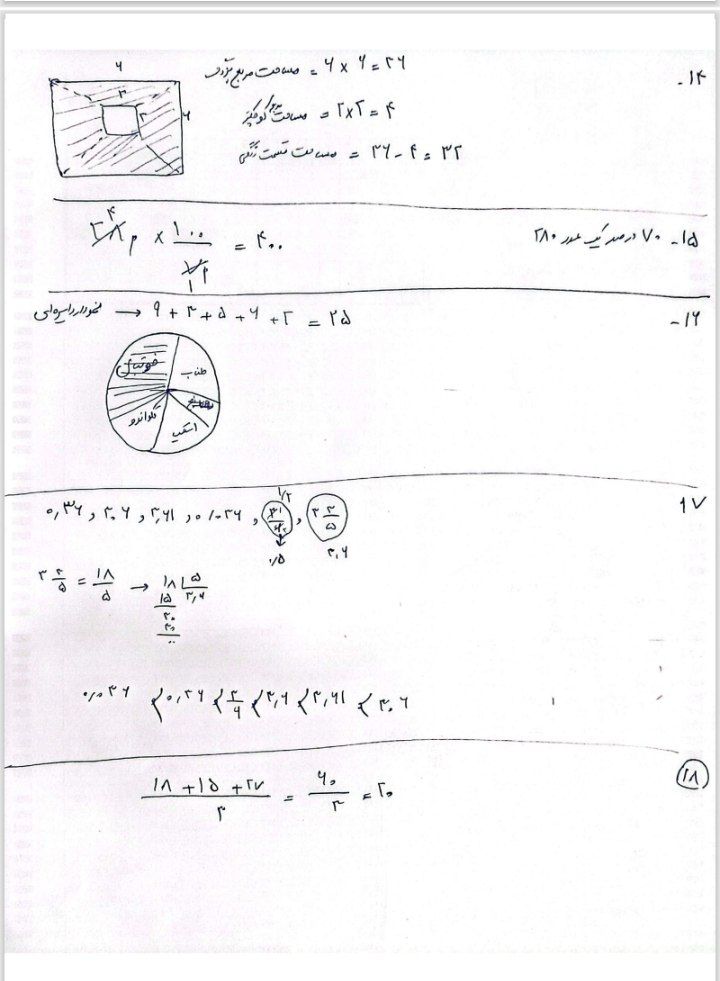 ۱۴-
۶
۶
۲
۲
مساحت مربع بزرگ = ۶ × ۶ = ۳۶
مساحت مربع کوچکتر = ۲×۲ = ۴
مساحت قسمت رنگی = ۳۶ - ۴ = ۳۲
۱۵- ۷۰ درصد یک عدد ۲۸۰
۴
۲۸۰ × ۱۰۰/۷۰ = ۴۰۰
۱
۱۶-
نمودار دایره‌ای → ۹ + ۳ + ۵ + ۶ + ۲ = ۲۵
فوتبال طناب
تکواندو اسکیت
۱۷
۰,۳۶ , ۳۰۶ , ۳,۶۱ , ۰/۰۳۶ , ۳/۶ , ۳ ۳/۵
۱/۲
۰/۵ ۳,۶
۳ ۳/۵ = ۱۸/۵ → ۱۸ ۵
۱۵ ۳,۶
۳۰
۳۰
۰۰
۰/۰۳۶ < ۰,۳۶ < ۳/۶ < ۳,۶ < ۳,۶۱ < ۳۰۶
۱۸
(۱۸ + ۱۵ + ۲۷)/۳ = ۶۰/۳ = ۲۰